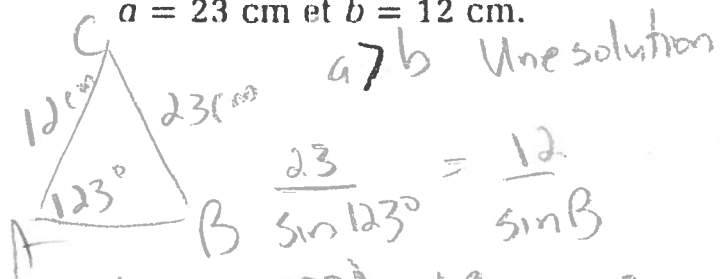 a = 23 cm et b = 12 cm.
a > b Une solution
C
12 cm 23 cm
123°
A B
23 / sin 123° = 12 / sin B